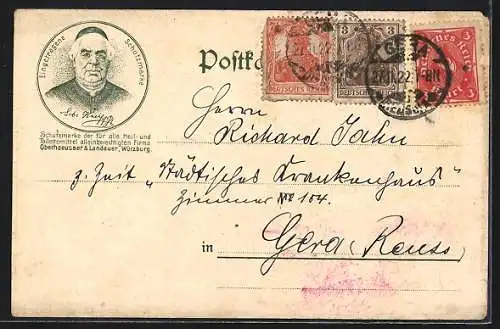 Eingetragene Schutzmarke
Seb. Kneipp
Schutzmarke der für alle Heil- und
allein berechtigten Firma
Oberhaeusser & Landauer, Würzburg.
Postka
DEUTSCHES REICH
3
DEUTSCHES REICH
3
GERA
27.11.22
3
3
Herrn
Richard Jahn
z. Zeit „Städtisches Krankenhaus"
Zimmer No 104.
in Gera (Reuss)